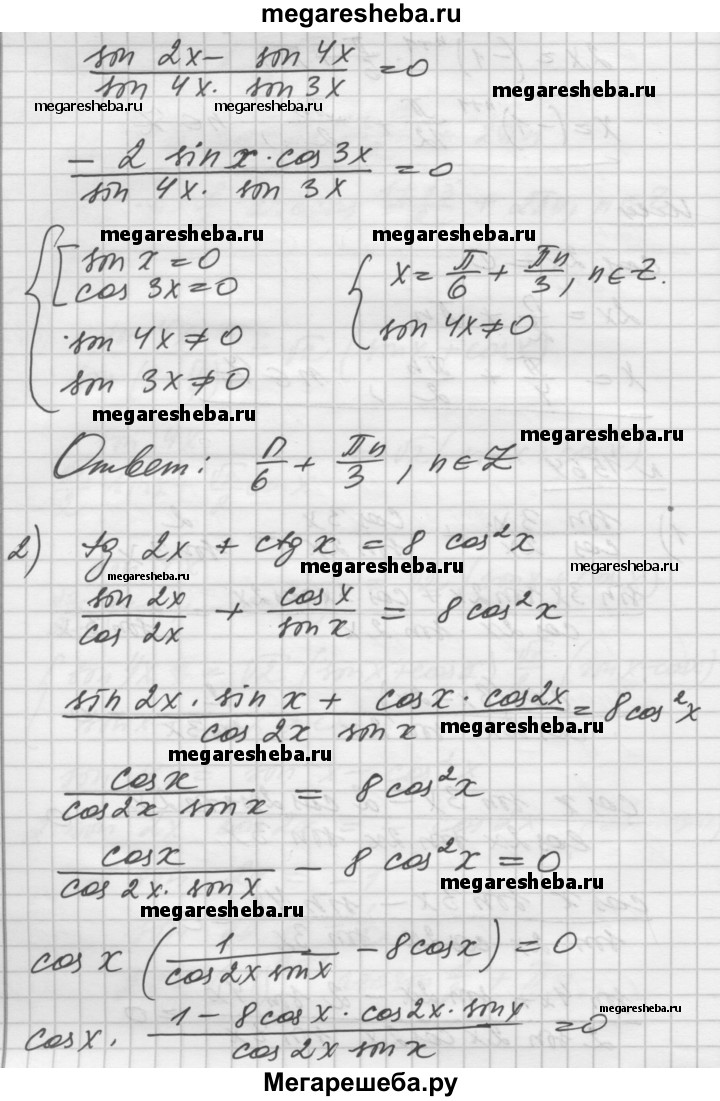 megaresheba.ru
sin 2x - sin 4x / sin 4x · sin 3x = 0
megaresheba.ru megaresheba.ru megaresheba.ru
- 2 sin x · cos 3x / sin 4x · sin 3x = 0
megaresheba.ru megaresheba.ru
{ [ sin x = 0
cos 3x = 0
sin 4x ≠ 0
sin 3x ≠ 0
{ x = π/6 + πn/3, n ∈ Z.
sin 4x ≠ 0
megaresheba.ru
megaresheba.ru
Ответ: π/6 + πn/3, n ∈ Z
2) tg 2x + ctg x = 8 cos²x
megaresheba.ru megaresheba.ru megaresheba.ru
sin 2x / cos 2x + cos x / sin x = 8 cos²x
sin 2x · sin x + cos x · cos 2x / cos 2x sin x = 8 cos²x
megaresheba.ru
megaresheba.ru
cos x / cos 2x sin x = 8 cos²x
cos x / cos 2x · sin x - 8 cos²x = 0
megaresheba.ru
megaresheba.ru
cos x ( 1 / cos 2x sin x - 8 cos x ) = 0
cos x · 1 - 8 cos x · cos 2x · sin x / cos 2x sin x = 0
megaresheba.ru
Мегарешеба.ру